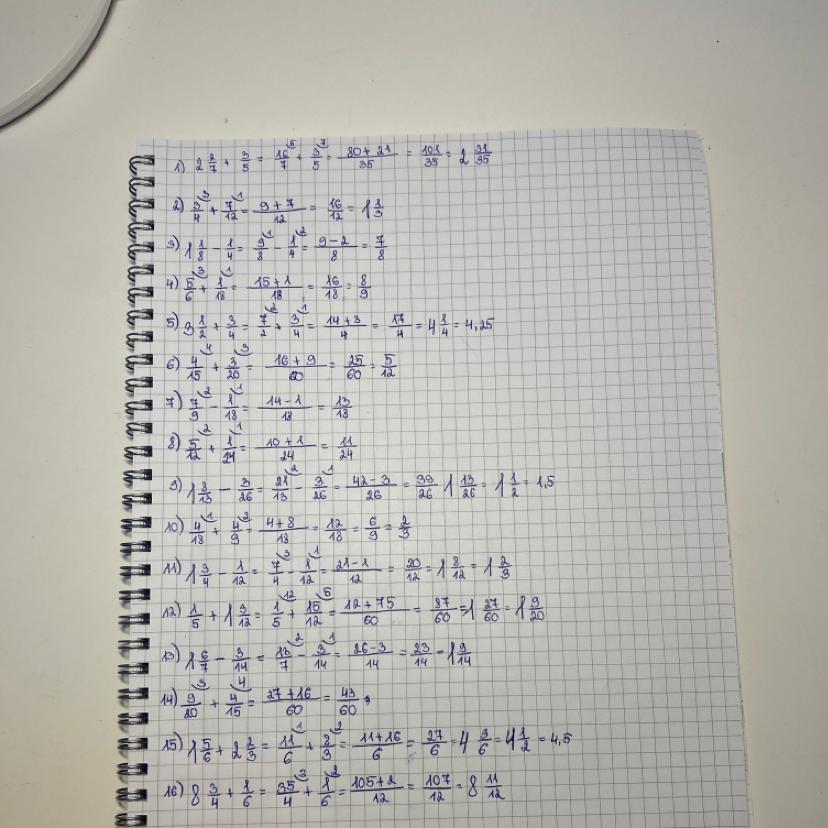 1) 2 2/7 + 3/5 = 16/7 ⁵ + 3/5 ⁷ = 80+21/35 = 101/35 = 2 31/35
2) 3/4 ³ + 7/12 ¹ = 9+7/12 = 16/12 = 1 1/3
3) 1 1/8 - 1/4 = 9/8 ¹ - 1/4 ² = 9-2/8 = 7/8
4) 5/6 ³ + 1/18 ¹ = 15+1/18 = 16/18 = 8/9
5) 3 1/2 + 3/4 = 7/2 ² + 3/4 ¹ = 14+3/4 = 17/4 = 4 1/4 = 4,25
6) 4/15 ⁴ + 3/20 ³ = 16+9/60 = 25/60 = 5/12
7) 7/9 ² - 1/18 ¹ = 14-1/18 = 13/18
8) 5/12 ² + 1/24 ¹ = 10+1/24 = 11/24
9) 1 8/13 - 3/26 = 21/13 ² - 3/26 ¹ = 42-3/26 = 39/26 1 13/26 = 1 1/2 = 1,5
10) 4/18 ¹ + 4/9 ² = 4+8/18 = 12/18 = 6/9 = 2/3
11) 1 3/4 - 1/12 = 7/4 ³ - 1/12 ¹ = 21-1/12 = 20/12 = 1 8/12 = 1 2/3
12) 1/5 + 1 3/12 = 1/5 ¹² + 15/12 ⁵ = 12+75/60 = 87/60 = 1 27/60 = 1 9/20
13) 1 6/7 - 3/14 = 13/7 ² - 3/14 ¹ = 26-3/14 = 23/14 = 1 9/14
14) 9/20 ³ + 4/15 ⁴ = 27+16/60 = 43/60
15) 1 5/6 + 2 2/3 = 11/6 ¹ + 8/3 ² = 11+16/6 = 27/6 = 4 3/6 = 4 1/2 = 4,5
16) 8 3/4 + 1/6 = 35/4 ³ + 1/6 ² = 105+2/12 = 107/12 = 8 11/12